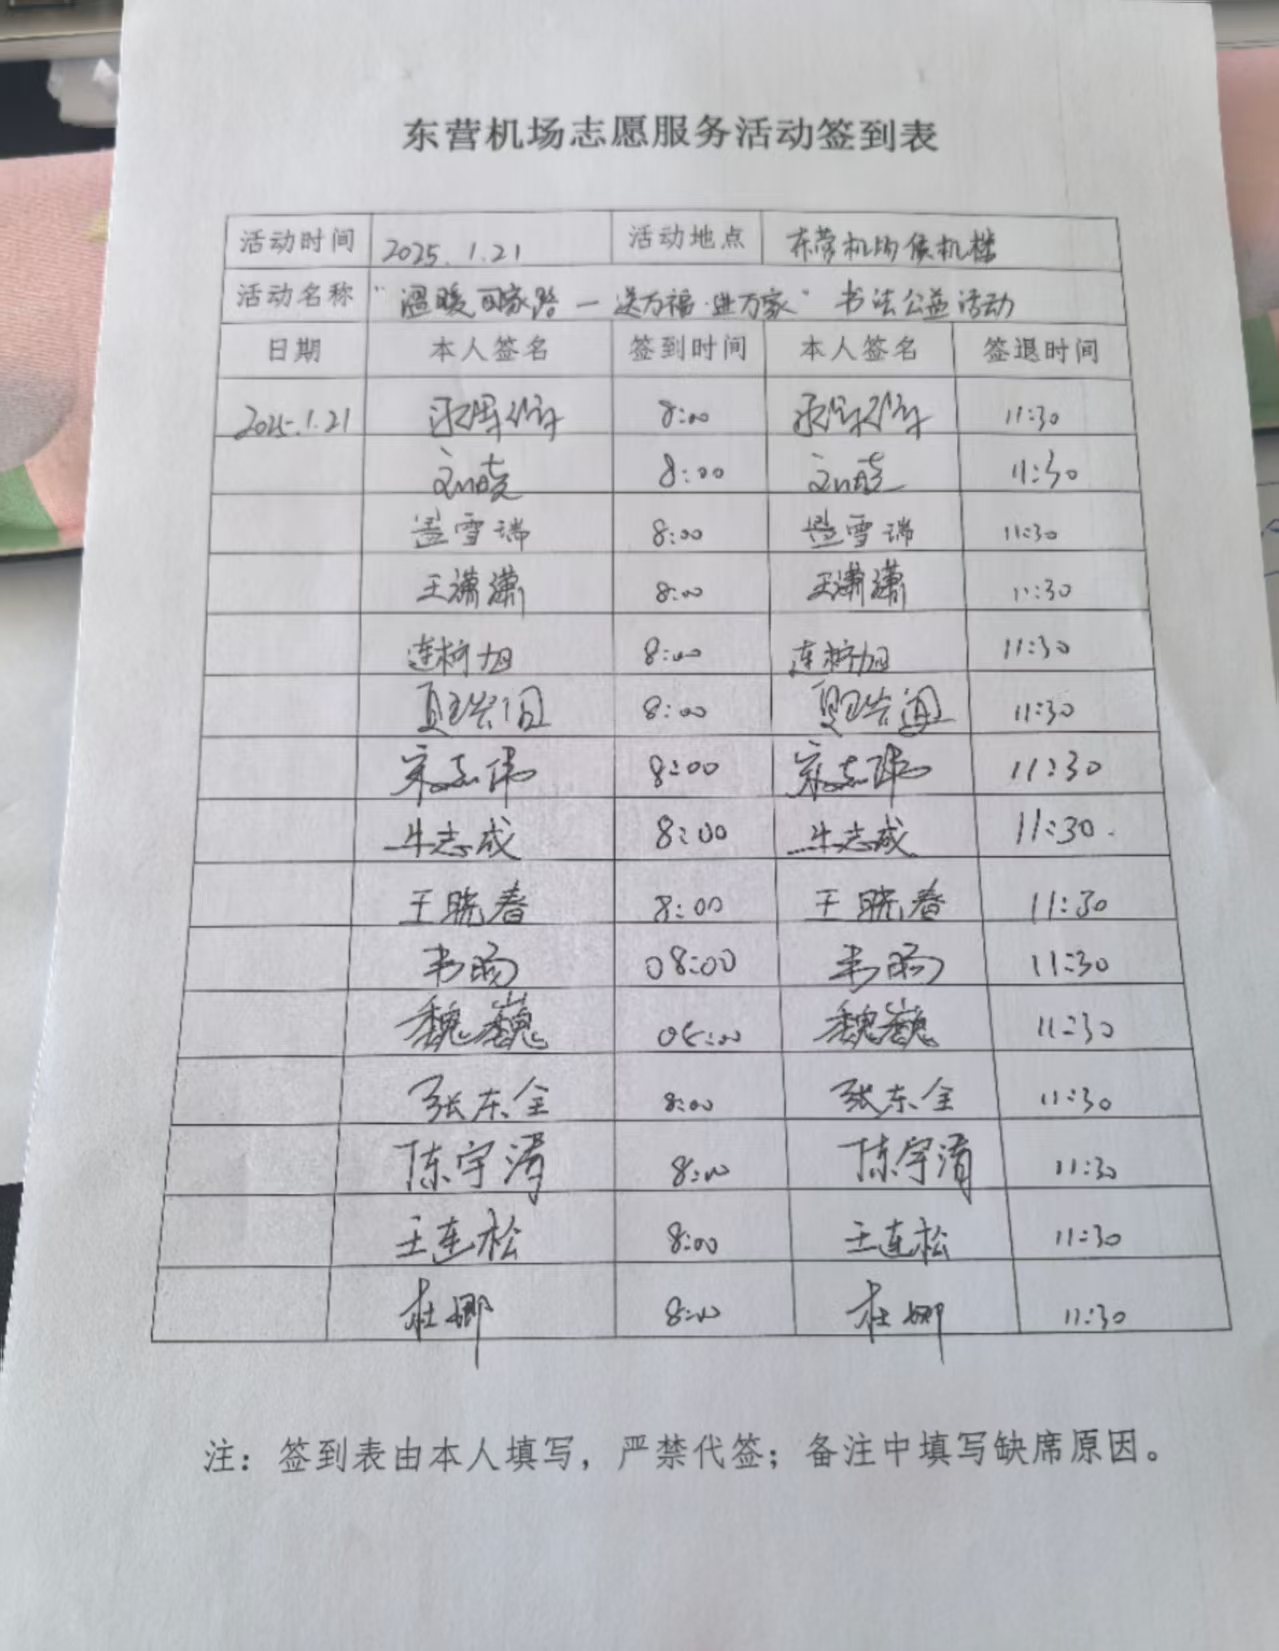 东营机场志愿服务活动签到表
活动时间 2025.1.21 活动地点 东营机场候机楼
活动名称 "温暖回家路—送万福·进万家"书法公益活动
日期 本人签名 签到时间 本人签名 签退时间
2025.1.21 8:00 11:30
刘晓 8:00 刘晓 11:30
盖雪瑞 8:00 盖雪瑞 11:30
王潇潇 8:00 王潇潇 11:30
连柯旭 8:00 连柯旭 11:30
8:00 11:30
宋志伟 8:00 宋志伟 11:30
牛志成 8:00 牛志成 11:30.
王晓春 8:00 王晓春 11:30
韦旸 08:00 韦旸 11:30
魏巍 08:00 魏巍 11:30
张东全 8:00 张东全 11:30
陈宇清 8:00 陈宇清 11:30
王连松 8:00 王连松 11:30
杜娜 8:00 杜娜 11:30
注：签到表由本人填写，严禁代签；备注中填写缺席原因。